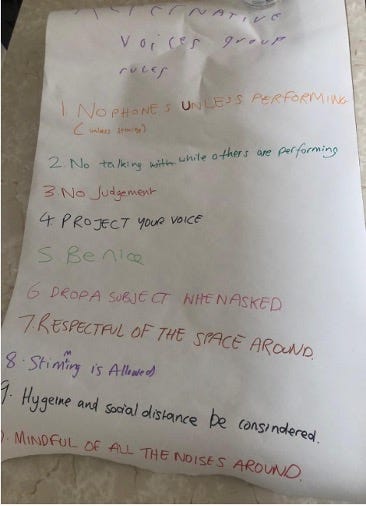 ALTERNATIVE
Voices group
rules
1 NO PHONES UNLESS PERFORMING
2. No talking while others are performing
3. No Judgement
4. PROJECT YOUR VOICE
5 Be nice
6 DROP A SUBJECT WHEN ASKED
7. RESPECTFUL OF THE SPACE AROUND.
8. Stimming is Allowed
9. Hygeine and social distance be consindered.
. MINDFUL OF ALL THE NOISES AROUND.